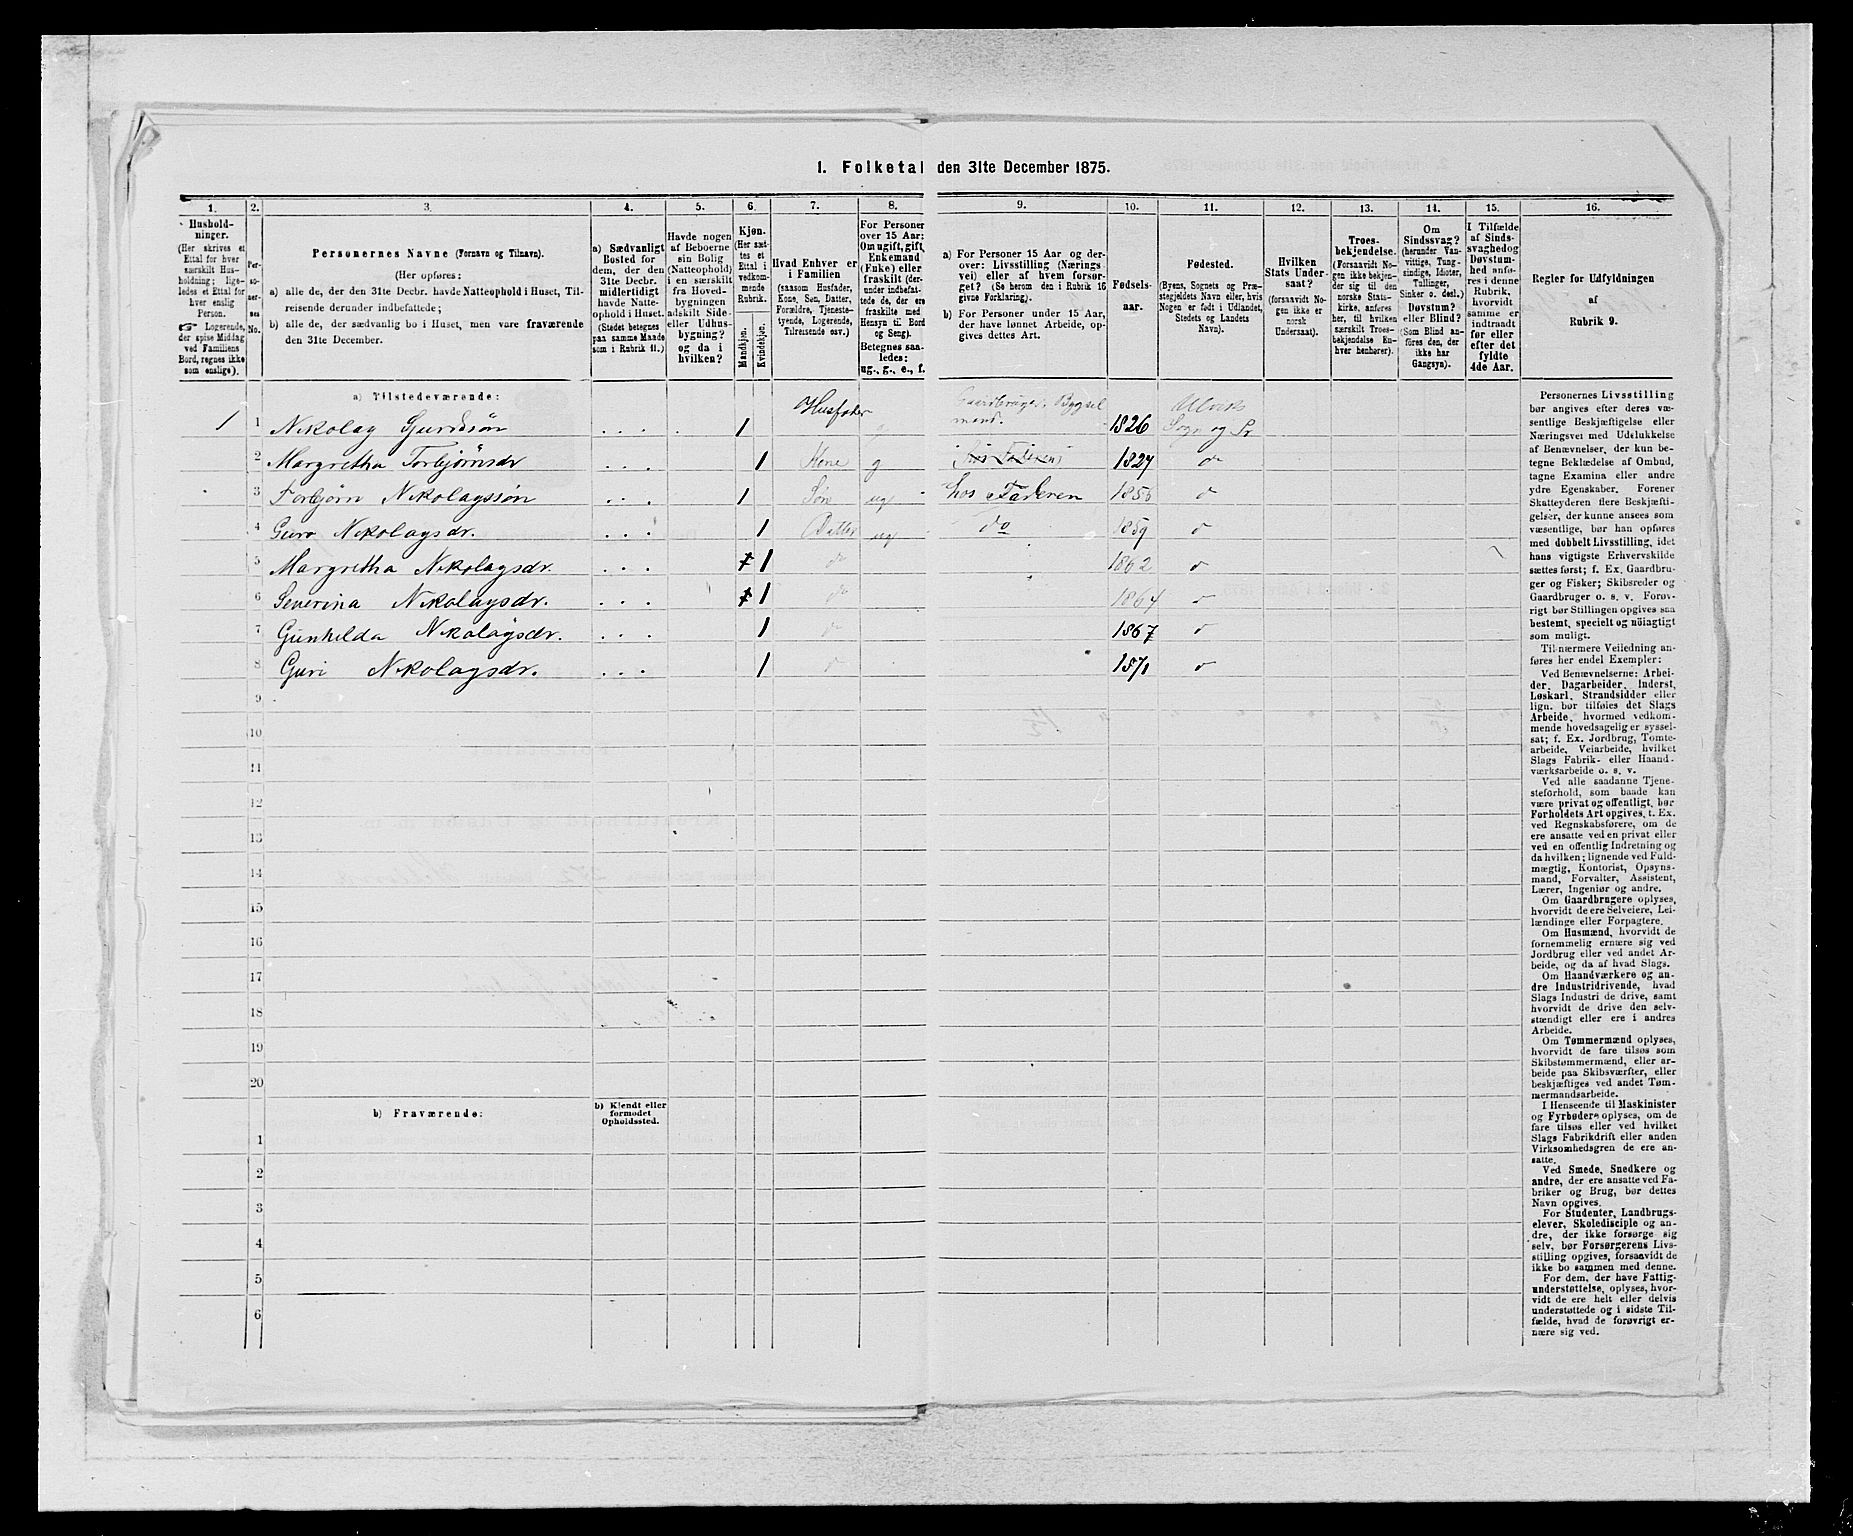 1. Folketal den 31te December 1875.
1. 2. 3. 4. 5. 6. 7. 8. 9. 10. 11. 12. 13. 14. 15. 16.
Hushold-
ninger.
(Her skrives et
Ettal for hver
særskilt Hus-
holdning; lige-
ledes et Ettal for
hver enslig
Person.
☞ Logerende,
der spise Middag
ved Familiens
Bord, regnes ikke
som enslige).
Per-
so-
ner-
nes
No.
Personernes Navne (Fornavn og Tilnavn).
(Her opføres:
a) alle de, der den 31te Decbr. havde Natteophold i Huset, Til-
reisende derunder indbefattede;
b) alle de, der sædvanlig bo i Huset, men vare fraværende
den 31te December.
a) Sædvanligt
Bosted for
dem, der den
31te Decbr.
midlertidigt
havde Natte-
ophold i Huset.
(Stedet betegnes
paa samme Maade
som i Rubrik 11.)
Havde nogen
af Beboerne
sin Bolig
(Natteophold)
i en særskilt
fra Hoved-
bygningen
adskilt Side-
eller Udhus-
bygning?
og da i
hvilken?
Kjøn.
(Her sæt-
tes et
Ettal i
vedkom-
mende
Rubrik.
Mandkjøn.
Kvindekjøn.
Hvad Enhver er
i Familien
(saasom Husfader,
Kone, Søn, Datter,
Forældre, Tjeneste-
tyende, Logerende,
Tilreisende osv.)
For Personer
over 15 Aar:
Om ugift, gift,
Enkemand
(Enke) eller
fraskilt (der-
under indbefat-
tede de, der ere
fraskilte med
Hensyn til Bord
og Seng).
Betegnes saa-
ledes:
ug., g., e., f.
a) For Personer 15 Aar og der-
over: Livsstilling (Nærings
vei) eller af hvem forsør-
get? (Se herom den i Rubrik 16
givne Forklaring).
b) For Personer under 15 Aar,
der have lønnet Arbeide, op-
gives dettes Art.
Fødsels-
aar.
Fødested.
(Byens, Sognets og Præ-
stegjeldets Navn eller, hvis
Nogen er født i Udlandet,
Stedets og Landets
Navn).
Hvilken
Stats Under-
saat?
(forsaavidt No-
gen ikke er
norsk
Undersaat).
Troes-
bekjendelse.
(Forsaavidt No-
gen ikke bekjen-
der sig til den
norske Stats-
kirke, anføres
her, til hvilken
særskilt Troes-
bekjendelse En-
hver henhører).
Om
Sindssvag?
(herunder Van-
vittige, Tung-
sindige, Idioter,
Tullinger,
Sinker o. desl.)
Døvstum?
eller Blind?
(Som Blind an-
føres den, der
ikke har
Gangsyn).
I Tilfælde
af Sinds-
svaghed og
Døvstum-
hed anfø-
res i denne
Rubrik,
hvorvidt
samme er
indtraadt
før eller
efter det
fyldte
4de Aar.
Regler for Udfyldningen
af
Rubrik 9.
a) Tilstedeværende:
1 1 Nikolay Guridsøn . . . 1 Husfader g Gaardbruger. Bygsel
mand. 1826 Ulviks
Sogn og Pr
2 Margretha Torbjørnsdr . . . 1 Kone g hos Faderen 1827 do
3 Torbjørn Nikolayssøn . . . 1 Søn ug hos Faderen 1856 do
4 Guro Nikolaysdr. . . . 1 Datter ug do 1859 do
5 Margretha Nikolaysdr. . . . 1 1 do 1862 do
6 Severina Nikolaysdr. . . . 1 1 do 1864 do
7 Gunhilda Nikolaysdr. . . . 1 do 1867 do
8 Guri Nikolaysdr. . . . 1 do 1871 do
9
10
11
12
13
14
15
16
17
18
19
20
b) Fraværende:
b) Kjendt eller
formodet
Opholdssted.
1
2
3
4
5
6
Personernes Livsstilling
bør angives efter deres væ-
sentlige Beskjæftigelse eller
Næringsvei med Udelukkelse
af Benævnelser, der kun be-
tegne Beklædelse af Ombud,
tagne Examina eller andre
ydre Egenskaber. Forener
Skatteyderen flere Beskjæfti-
gelser, der kunne ansees som
væsentlige, bør han opføres
med dobbelt Livsstilling, idet
hans vigtigste Erhvervskilde
sættes først; f. Ex. Gaardbru-
ger og Fisker; Skibsreder og
Gaardbruger o. s. v. Forøv-
rigt bør Stillingen opgives saa
bestemt, specielt og nöiagtigt
som muligt.
Til nærmere Veiledning an-
føres her endel Exempler:
Ved Benævnelserne: Arbei-
der, Dagarbeider, Inderst,
Løskarl, Strandsidder eller
lign. bør tilføies det Slags
Arbeide, hvormed vedkom-
mende hovedsagelig er syssel-
sat; f. Ex. Jordbrug, Tomte-
arbeide, Veiarbeide, hvilket
Slags Fabrik- eller Haand-
værksarbeide o. s. v.
Ved alle saadanne Tjene-
steforhold, som baade kan
være privat og offentligt, bør
Forholdets Art opgives, t. Ex.
ved Regnskabsførere, om de
ere ansatte ved en privat eller
ved en offentlig Indretning og
da hvilken; lignende ved Fuld-
mægtig, Kontorist, Opsyns-
mand, Forvalter, Assistent,
Lærer, Ingeniør og andre.
Om Gaardbrugere oplyses,
hvorvidt de ere Selveiere, Lei-
lændinge eller Forpagtere.
Om Husmænd, hvorvidt de
fornemmelig ernære sig ved
Jordbrug eller ved andet Ar-
beide, og da af hvad Slags.
Om Haandværkere og an-
dre Industridrivende, hvad
Slags Industri de drive, samt
hvorvidt de drive den selv-
stændigt eller ere i andres
Arbeide.
Om Tømmermænd oplyses,
hvorvidt de fare tilsøs som
Skibstømmermænd, eller ar-
beide paa Skibsværfter, eller
beskjæftiges ved andet Tøm-
mermandsarbeide.
I Henseende til Maskinister
og Fyrbødere oplyses, om de
fare tilsøs eller ved hvilket
Slags Fabrikdrift eller anden
Virksomhedsgren de ere an-
satte.
Ved Smede, Snedkere og
andre, der ere ansatte ved Fa-
briker og Brug, bør dettes
Navn opgives.
For Studenter, Landbrugs-
elever, Skoledisciple og an-
dre, der ikke forsørge sig
selv, bør Forsørgerens Livs-
stilling opgives, forsaavidt de
ikke bo sammen med denne.
For dem, der have Fattig-
understøttelse, oplyses, hvor-
vidt de ere helt eller delvis
understøttede og i sidste Til-
fælde, hvad de forøvrigt er-
nære sig ved.